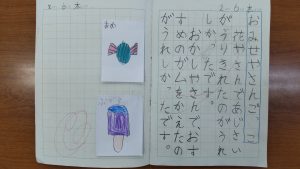 2-6 木
おみせやさんごっこ
花やさんであじさい
がうりきれたのがうれ
しかったです。
おかしやさんで、おす
すめのガムをかえたの
がうれしかったです。
2-6 木
あめ